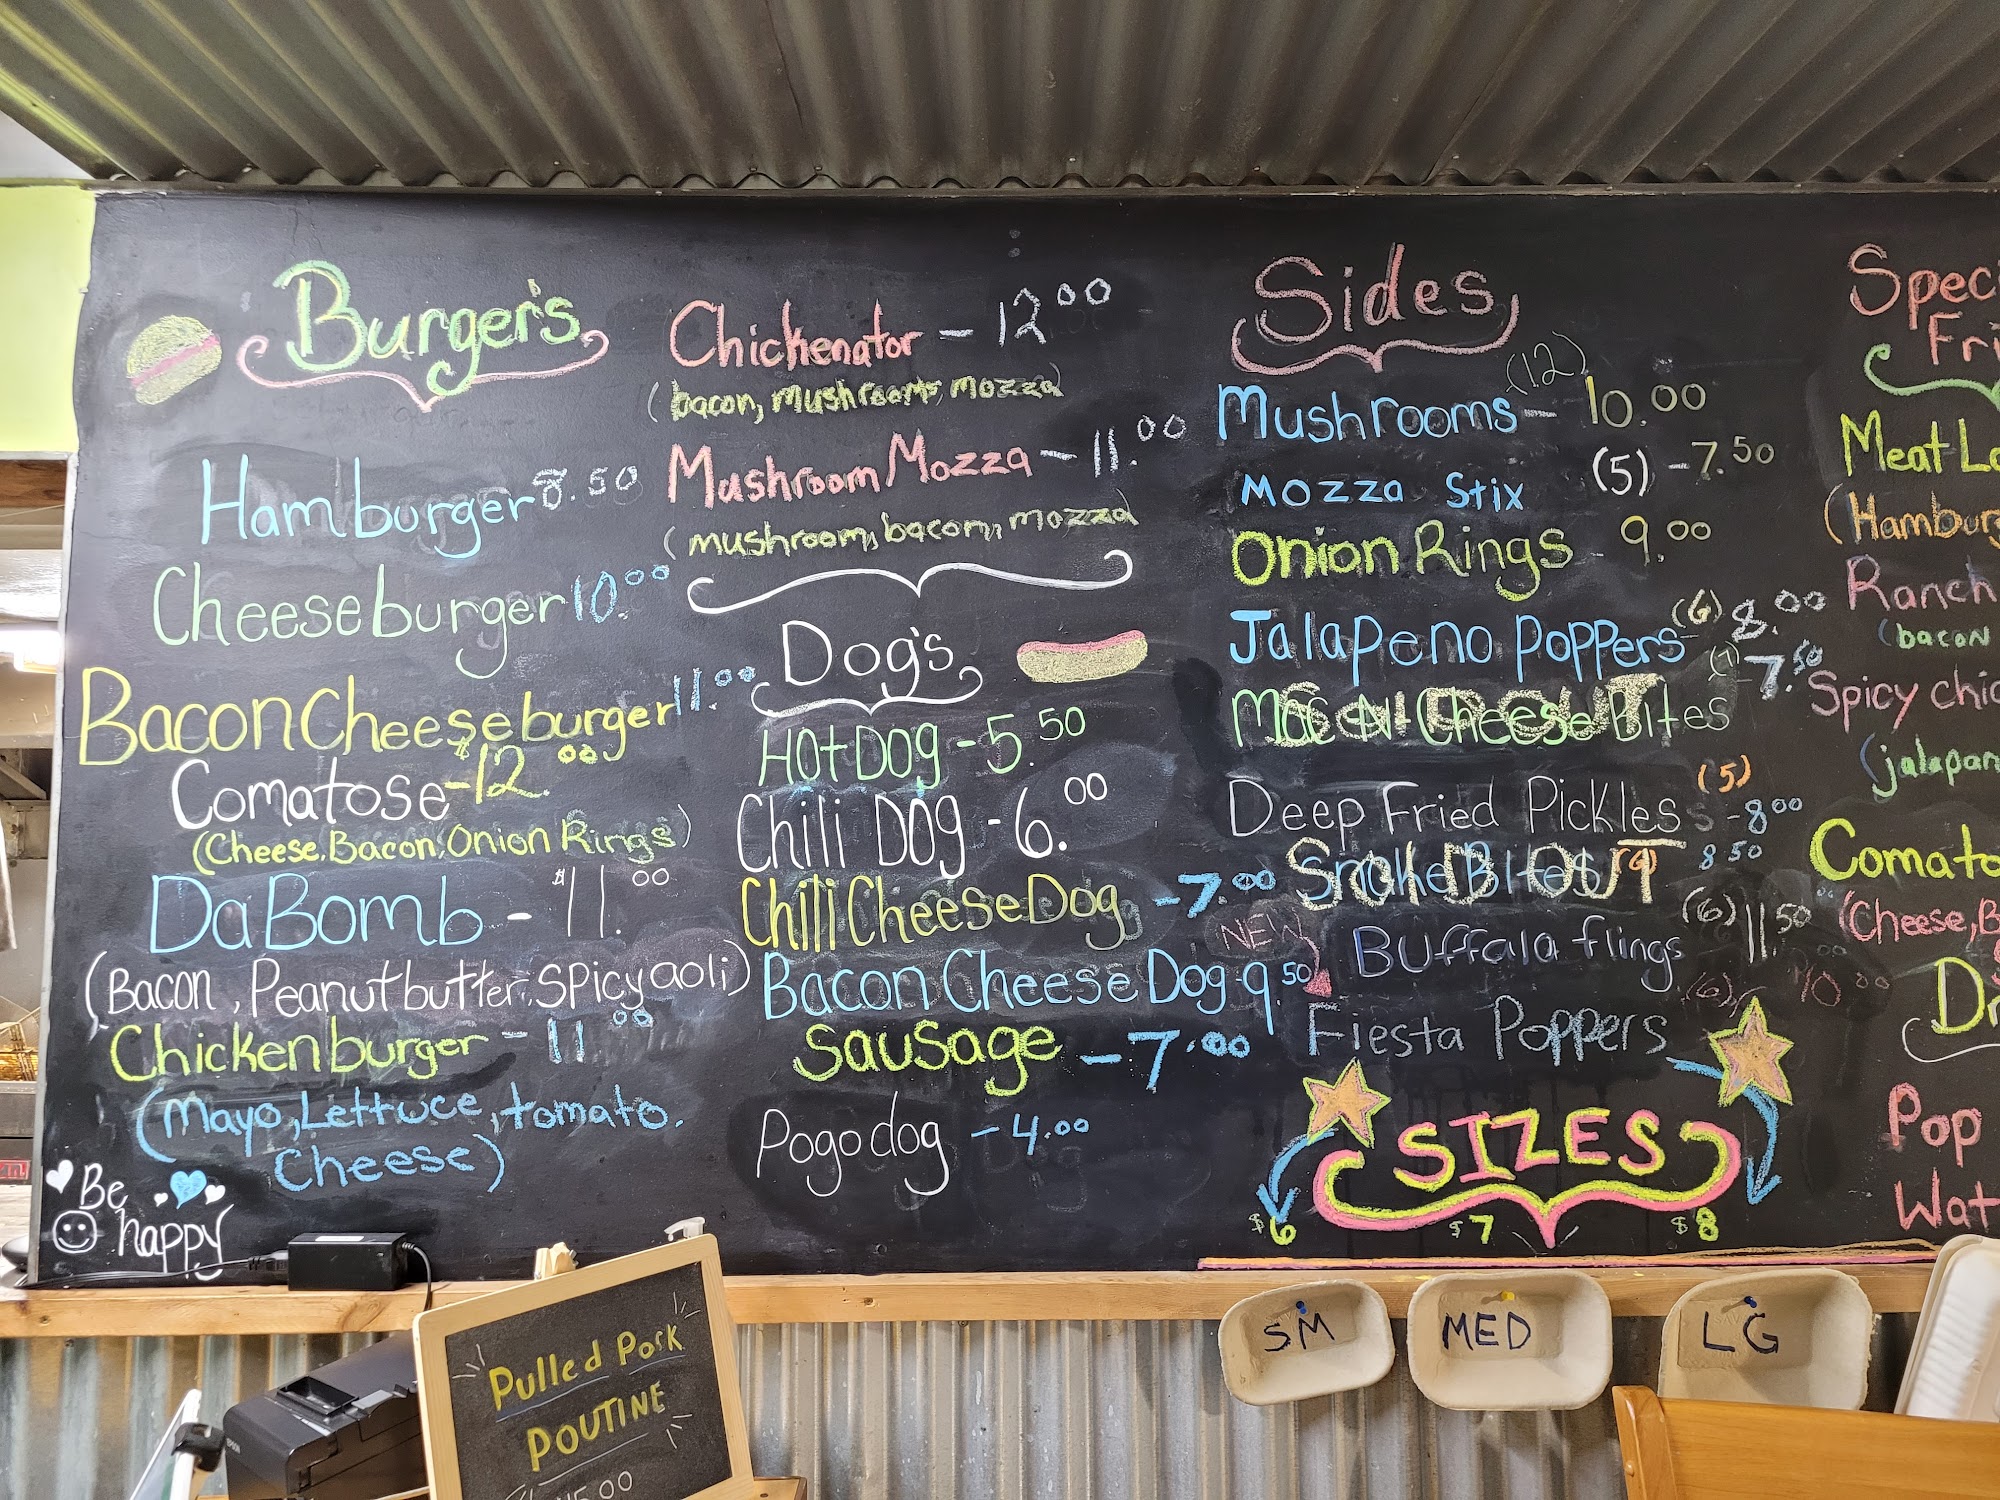 Burger's
Hamburger 8.50
Cheeseburger 10.00
Bacon Cheeseburger 11.00
Comatose - 12.00
(Cheese, Bacon, Onion Rings)
Da Bomb - $11.00
(Bacon, Peanutbutter, Spicy aoli)
Chickenburger - 11.00
(Mayo, Lettuce, tomato.
Cheese)
Be
happy
Chickenator - 12.00
(bacon, mushrooms, mozza)
Mushroom Mozza - 11.00
(mushroom, bacon, mozza)
Dog's
Hot Dog - 5.50
Chili Dog - 6.00
Chili Cheese Dog - 7.00
Bacon Cheese Dog - 9.50
Sausage - 7.00
Pogo dog - 4.00
Sides
Mushrooms (12) - 10.00
Mozza Stix (5) - 7.50
Onion Rings - 9.00
Jalapeno Poppers (6) 8.00
Mac N Cheese Bites (7) - 7.50
SOLD OUT
Deep Fried Pickles (5) - 8.00
Snake Bites 8.50
SOLD OUT
NEW
Buffala flings (6) 11.50
Fiesta Poppers (6) 10.00
SIZES
$6 $7 $8
SM MED LG
Speci
Fri
Meat Lo
(Hamburg
Ranch
(bacon
Spicy chic
(jalapan
Comato
(Cheese, B
Dr
Pop
Wat
Pulled Pork
POUTINE